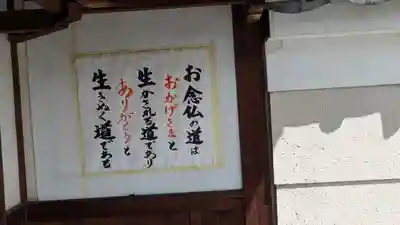 お念仏の道は
おかげさまと
生かされる道であり
ありがとうと
生きぬく道である